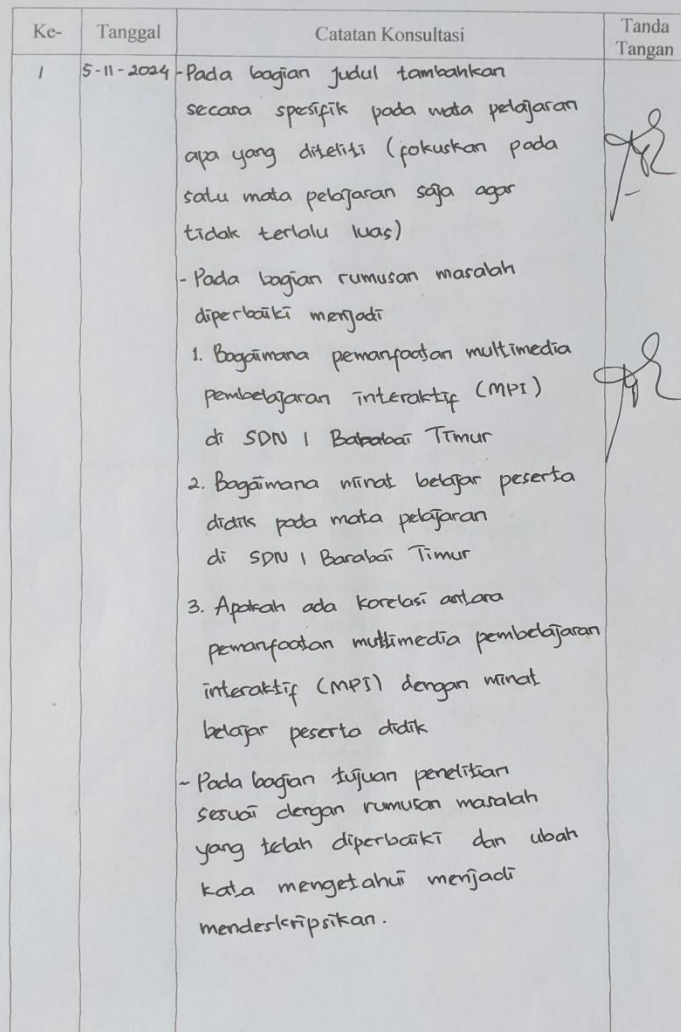 Ke- Tanggal Catatan Konsultasi Tanda Tangan
1 5-11-2024 - Pada bagian judul tambahkan
secara spesifik pada mata pelajaran
apa yang diteliti (fokuskan pada
satu mata pelajaran saja agar
tidak terlalu luas)
- Pada bagian rumusan masalah
diperbaiki menjadi
1. Bagaimana pemanfaatan multimedia
pembelajaran interaktif (MPI)
di SDN 1 Barabai Timur
2. Bagaimana minat belajar peserta
didik pada mata pelajaran
di SDN 1 Barabai Timur
3. Apakah ada korelasi antara
pemanfaatan multimedia pembelajaran
interaktif (MPI) dengan minat
belajar peserta didik
- Pada bagian tujuan penelitian
sesuai dengan rumusan masalah
yang telah diperbaiki dan ubah
kata mengetahui menjadi
mendeskripsikan.